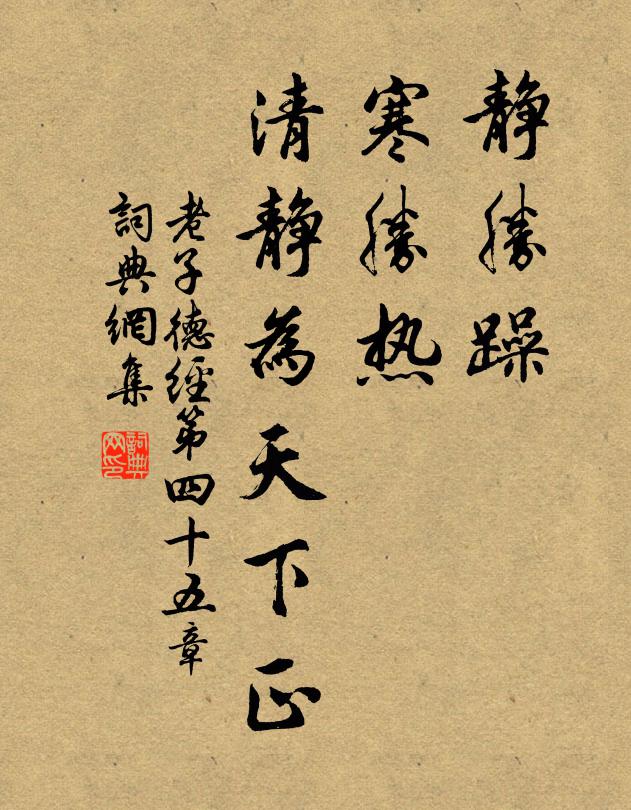 静勝躁
寒勝热
清静為天下正
老子德經第四十五章
詞典網集
詞典
网印